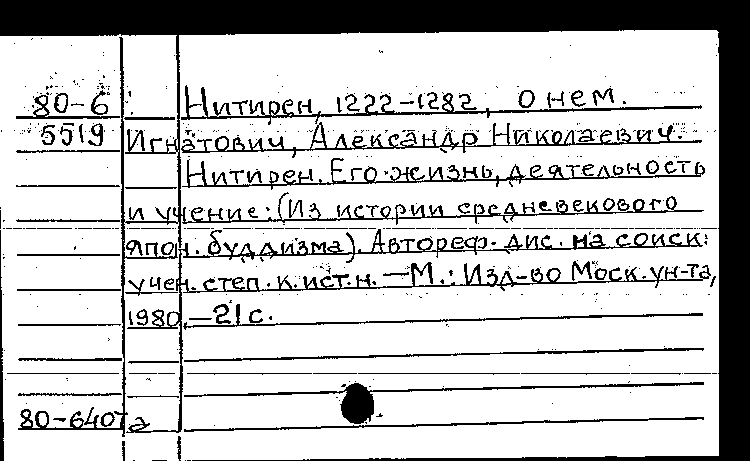 80-6 Нитирен, 1222-1282, о нем.
5519 Игнатович, Александр Николаевич.
Нитирен. Его жизнь, деятельность
и учение: (Из истории средневекового
япон. буддизма). Автореф. дис. на соиск.
учен. степ. к. ист. н. —М.: Изд-во Моск. ун-та,
1980. —21 с.
80-640та